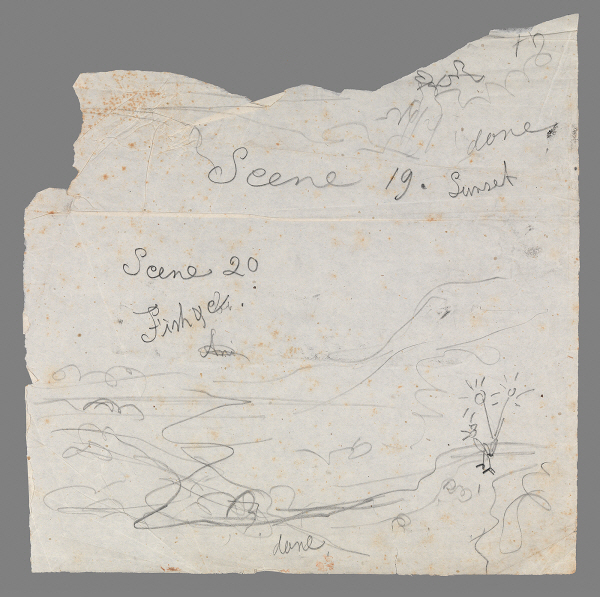 done
Scene 19. Sunset
Scene 20
Fish &c.
done